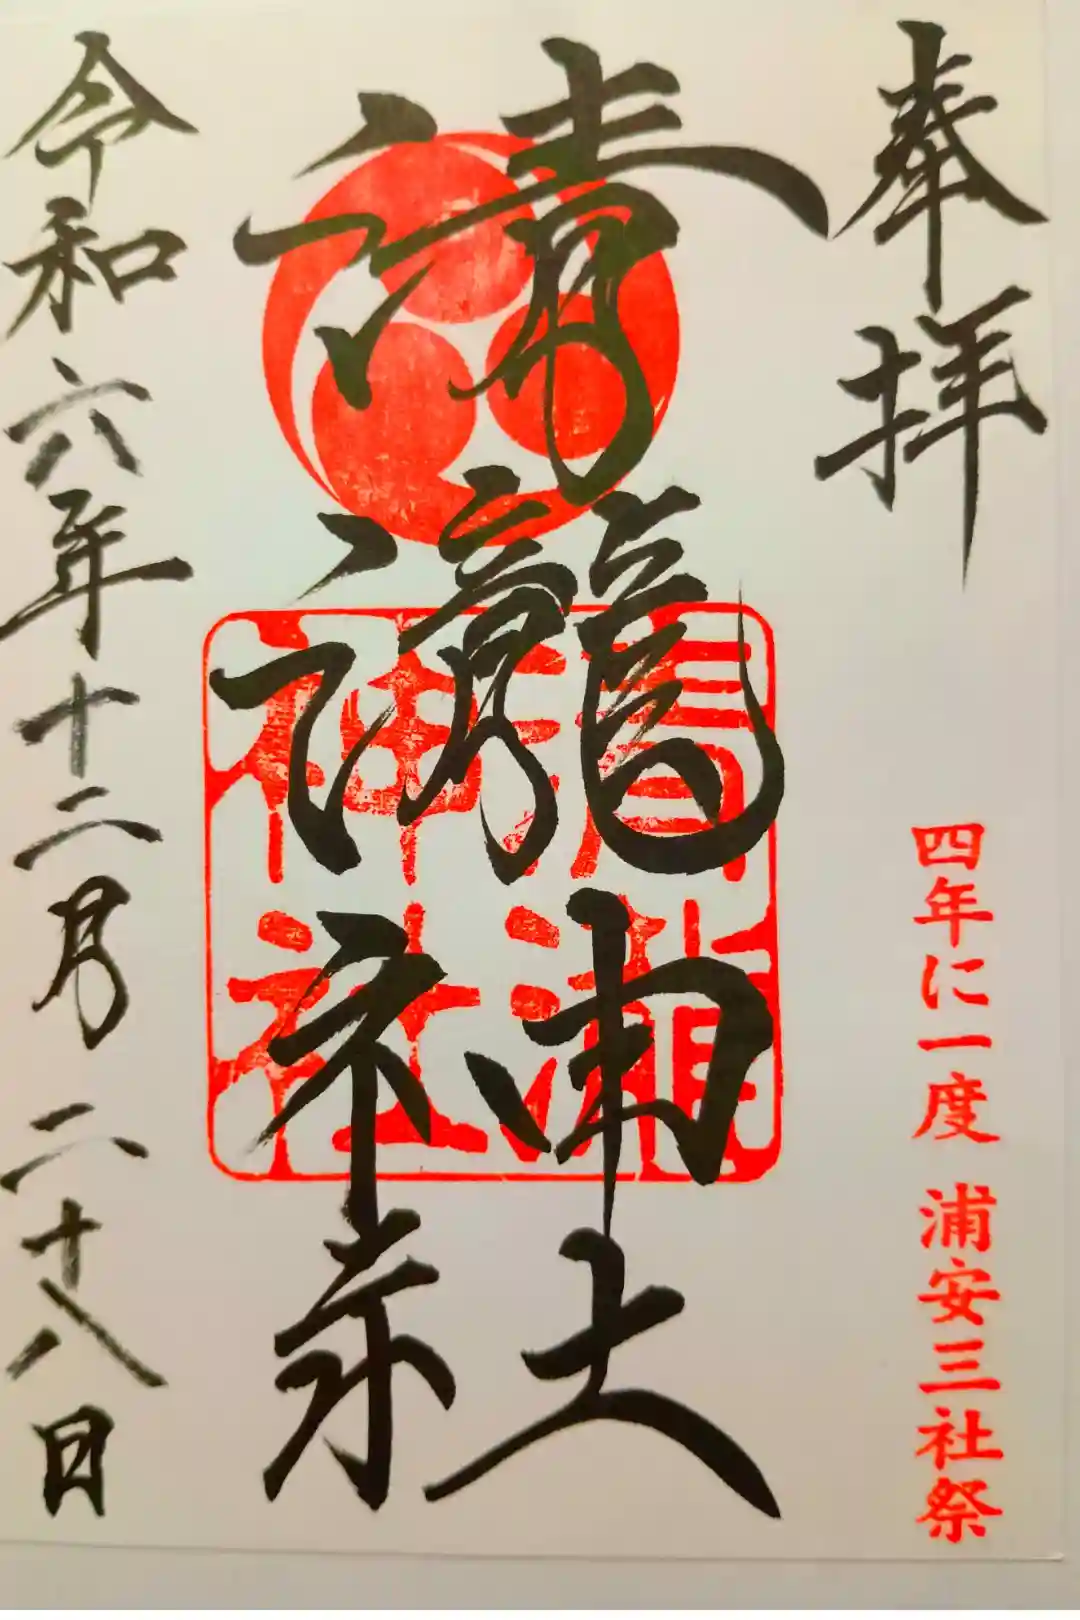 奉拝
四年に一度 浦安三社祭
清瀧神社
令和六年十二月二十八日